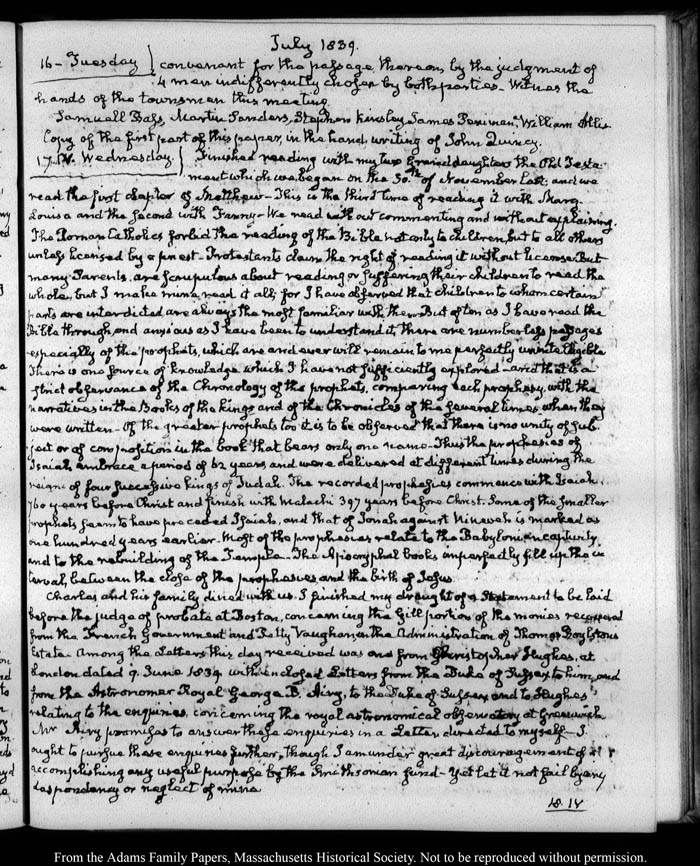 July 1839.
16 - Tuesday } convenant for the passage thereon, by the judgment of
4 men indifferently chosen by both parties - Witnes the
hands of the townsmen this meeting
Samuell Bass, Martin Sanders, Stephen Kinsley James Peniman William Allis
Copy of the first part of this paper, in the hand writing of John Quincy.
17. IV. Wednesday. } Finished reading with my two Grand daughters the Old Testa
ment which we began on the 30th of November last, and we
read the first chapter of Matthew - This is the third time of reading it with Mary
Louisa and the second with Fanny - We read without commenting and without explaining.
The Roman Catholics forbid the reading of the Bible not only to children, but to all others
unless licensed by a priest - Protestants claim the right of reading it without license. But
many Parents, are scrupulous about reading or suffering their children to read the
whole, but I make mine read it all; for I have observed that children to whom certain
parts are interdicted are always the most familiar with them. But often as I have read the
Bible through, and anxious as I have been to understand it, there are numberless passages
especially of the prophets, which are and ever will remain to me perfectly unintelligible
There is one source of knowledge which I have not sufficiently explored - and that is a
strict observance of the Chronology of the prophets, comparing each prophesy, with the
narratives in the Books of the kings and of the Chronicles of the several times when they
were written - of the greater prophets too it is to be observed that there is no unity of sub
ject or of composition in the book that bears only one name - Thus the prophesies of
Isaiah embrace a period of 62 years, and were delivered at different times during the
reigns of four successive kings of Judah. The recorded prophesies commence with Isaiah
760 years before Christ and finish with Malachi 397 years before Christ. Some of the smaller
prophets seem to have preceded Isaiah, and that of Jonah against Nineveh is marked as
one hundred years earlier. Most of the prophesies relate to the Babylonian captivity,
and to the rebuilding of the Temple. The Apocryphal books imperfectly fill up the in
terval, between the close of the prophesies and the birth of Jesus.
Charles and his family dined with us. I finished my draught of a Statement to be laid
before the judge of probate at Boston, concerning the Gill portion of the monies recovered
from the French Government and Petty Vaughan, in the Administration of Thomas Boylston's
Estate - Among the Letters this day received was one from Christopher Hughes, at
London dated 9. June 1839 with enclosed Letters from the Duke of Sussex to him, and
from the Astronomer Royal George B. Airy, to the Duke of Sussex and to Hughes
relating to the enquiries, concerning the royal astronomical observatory at Greenwich
Mr Airy promises to answer these enquiries in a Letter directed to myself - I
ought to pursue these enquiries further, though I am under great discouragement of
accomplishing any useful purpose by the Smithsonian fund - Yet let it not fail by any
despondency or neglect of mine
18. IV
From the Adams Family Papers, Massachusetts Historical Society. Not to be reproduced without permission.